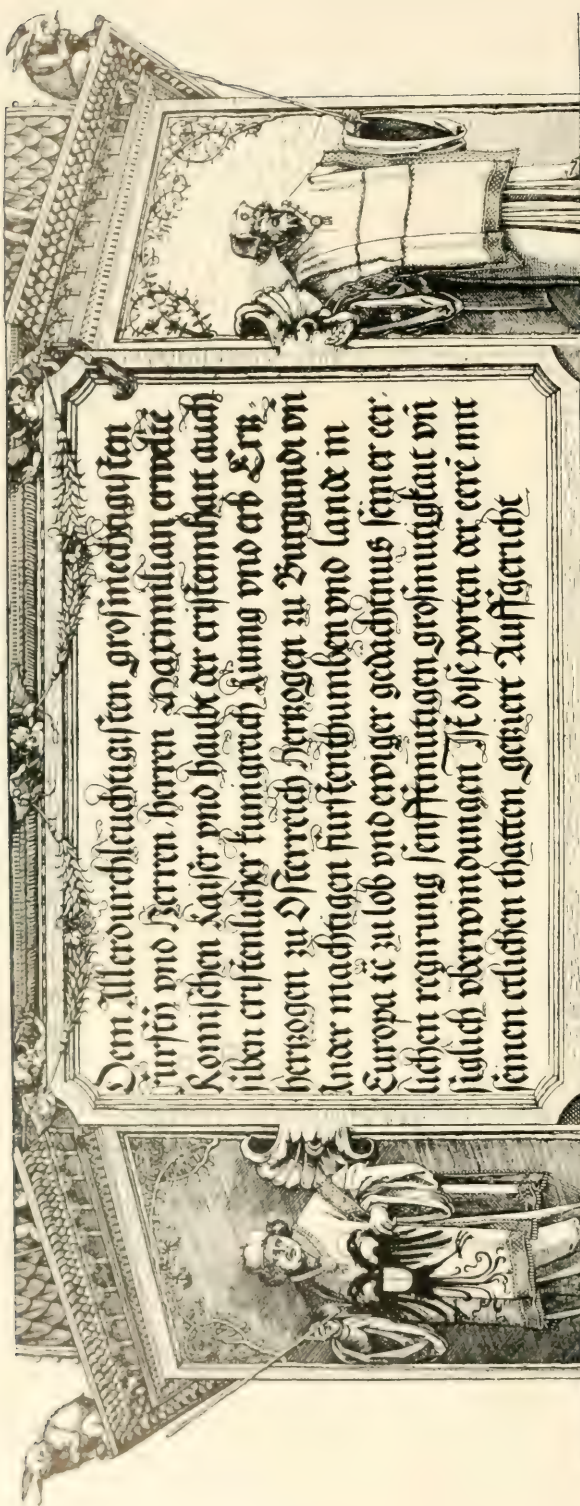 Dem Allerdurchleuchtigisten grosmechtigisten
Furstñ vnd Herren herren Maxmilian erwelte
Romischen Kaiser vnd haubt der cristennhait auch
siben cristenlicher kunigreich Kung vnd erb Ertz-
herzogen zu Osterreich Herzogen zu Burgundi vñ
Ander machtigen furstenthumben vnd lande in
Europa ꝛc zu lob vnd ewiger gedachtnus seiner er-
lichen regirung senfftmutigen grosmutigkait vñ
siglich vberwindungen Ist dise porten der eere mit
seinen etlichen thatten geziert Auffgericht